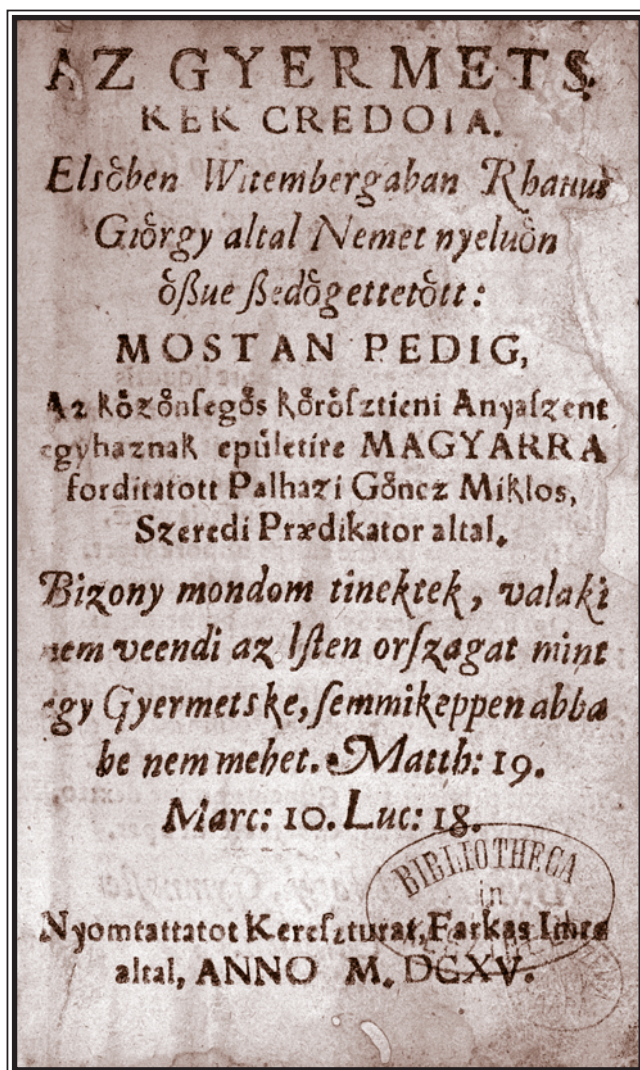 AZ GYERMETS-
KEK CREDOIA.
Elsőben Witembergaban Rhauus
Giőrgy altal Nemet nyeluőn
őßue ßedőgettetőtt:
MOSTAN PEDIG,
Az kőzőnsegős kőrősztieni Anyaſzent
egyhaznak epuͤletire MAGYARRA
forditatott Palhazi Gőncz Miklos,
Szeredi Prædikator altal.
Bizony mondom tinektek, valaki
nem veendi az Iſten orſzagat mint
egy Gyermetske, ſemmikeppen abba
be nem mehet. Matth: 19.
Marc: 10. Luc: 18.
BIBLIOTHECA
in
Nyomtattatot Kereſzturat, Farkas Imre
altal, ANNO M. DCXV.